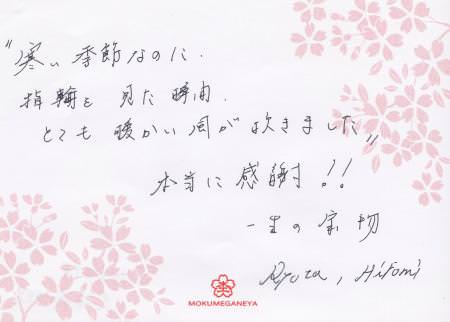 "寒い季節なのに.
指輪を 見た瞬間.
とても 暖かい風が吹きました„
本当に感謝!!
一生の宝物
Ryota, Hitomi
MOKUMEGANEYA